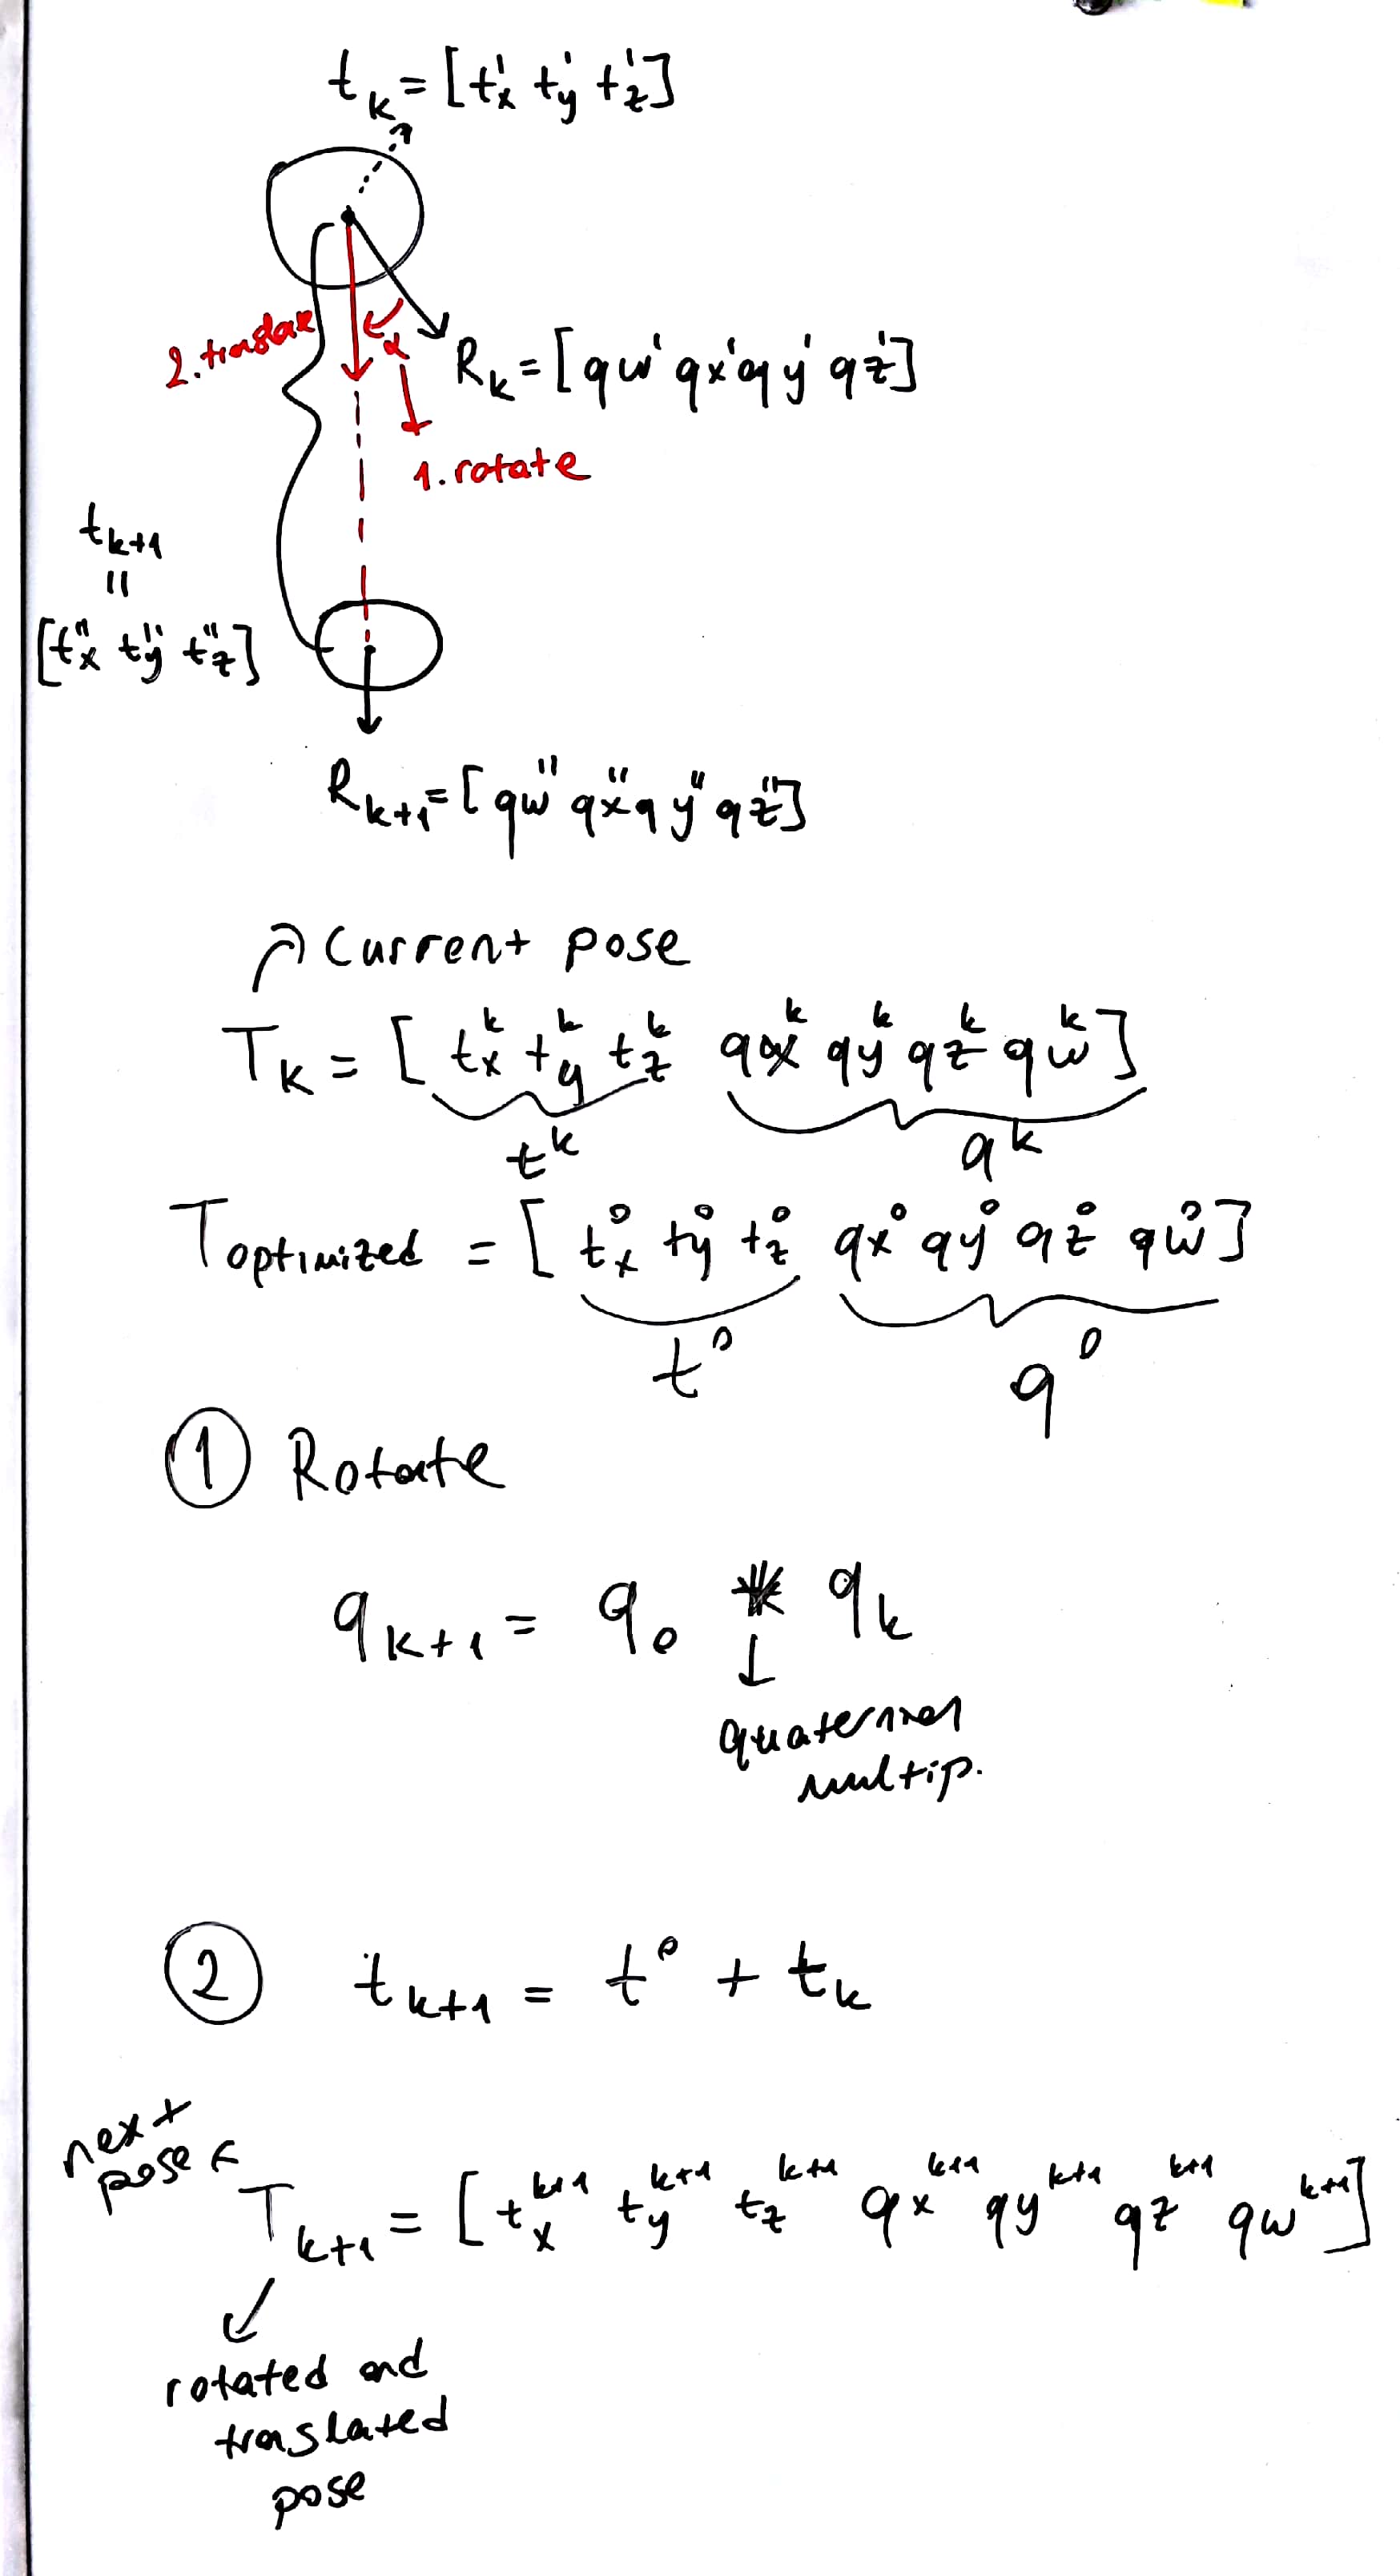 t_k = [tx' ty' tz']
2. translate
α
R_k = [qw' qx' qy' qz']
1. rotate
t_{k+1}
=
[tx'' ty'' tz'']
R_{k+1} = [qw'' qx'' qy'' qz'']
Current pose
T_K = [t_x^k t_y^k t_z^k qx^k qy^k qz^k qw^k]
t^k q^k
T_optimized = [t_x^o t_y^o t_z^o qx^o qy^o qz^o qw^o]
t^o q^o
① Rotate
q_{k+1} = q_o * q_k
quaternion
multip.
② t_{k+1} = t^o + t_k
next
pose
T_{k+1} = [t_x^{k+1} t_y^{k+1} t_z^{k+1} qx^{k+1} qy^{k+1} qz^{k+1} qw^{k+1}]
rotated and
translated
pose